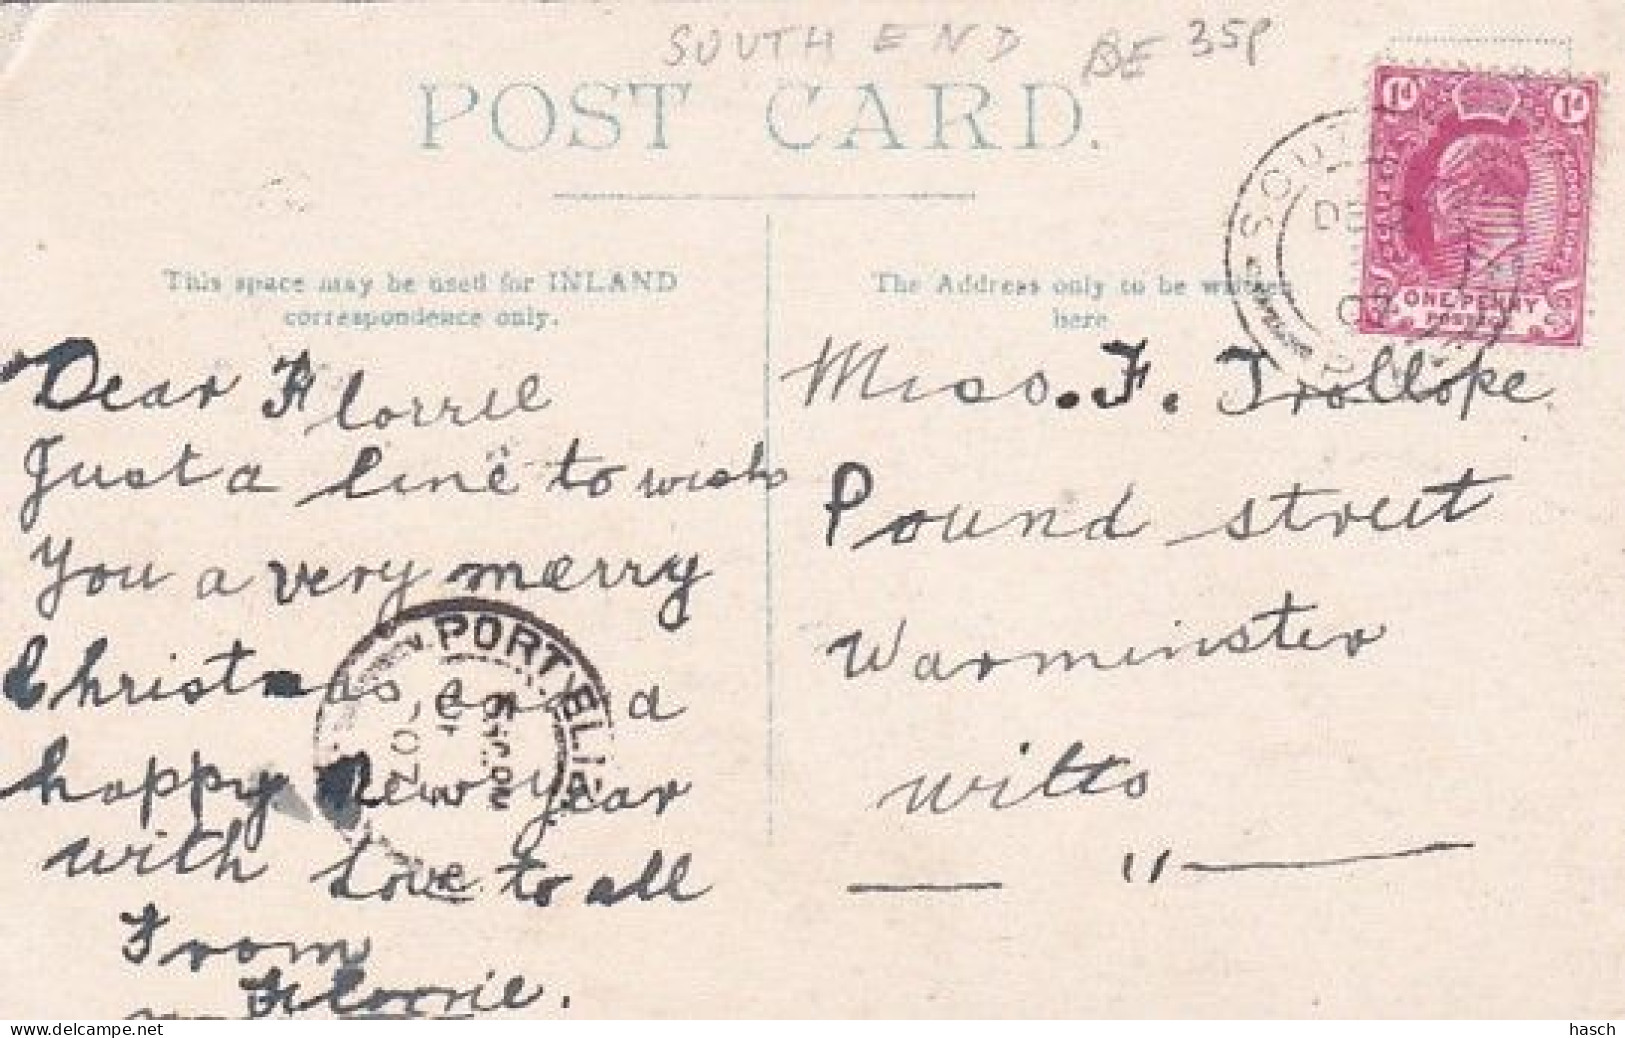 SOUTH END BE 35p
POST CARD.
This space may be used for INLAND
correspondence only.
The Address only to be written
here
1d 1d
ONE PENNY
POSTAGE
SOUT
DE
07
Dear Florrie
Just a line to wish
You a very merry
Christmas and a
happy New year
with Love to all
From
Florrie.
PORT ELIZA
07
Miss. F. Trollope
Pound street
Warminster
Wilts
"
delcampe.net
hasch